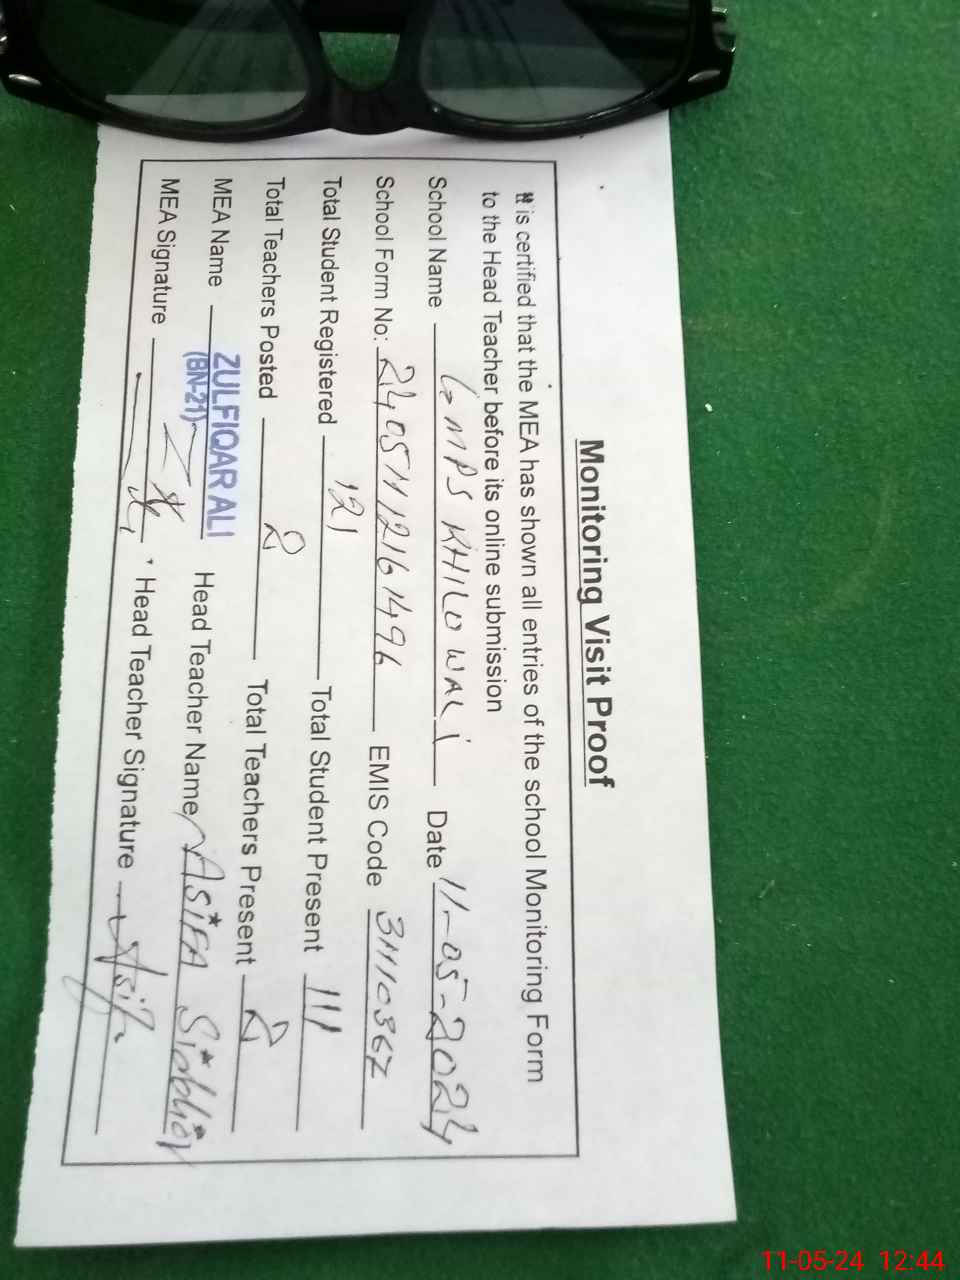 Monitoring Visit Proof
It is certified that the MEA has shown all entries of the school Monitoring Form
to the Head Teacher before its online submission
School Name GMPS KHILO WALI Date 11-05-2024
School Form No: EMIS Code
Total Student Registered 121 Total Student Present 111
Total Teachers Posted 2 Total Teachers Present 2
MEA Name ZULFIQAR ALI Head Teacher Name ASIFA
(BN-21)
MEA Signature Head Teacher Signature Asifa
11-05-24 12:44